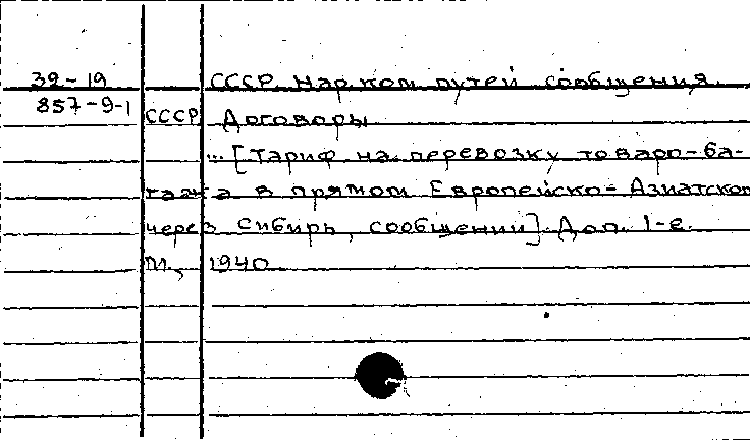 39-19 СССР. Нар. ком. путей сообщения.
857-9-1 СССР. Договоры
... [Тариф на перевозку товаро-ба-
гажа в прямом Европейско=Азиатском
через Сибирь, сообщении]. Доп. 1-е.
М., 1940